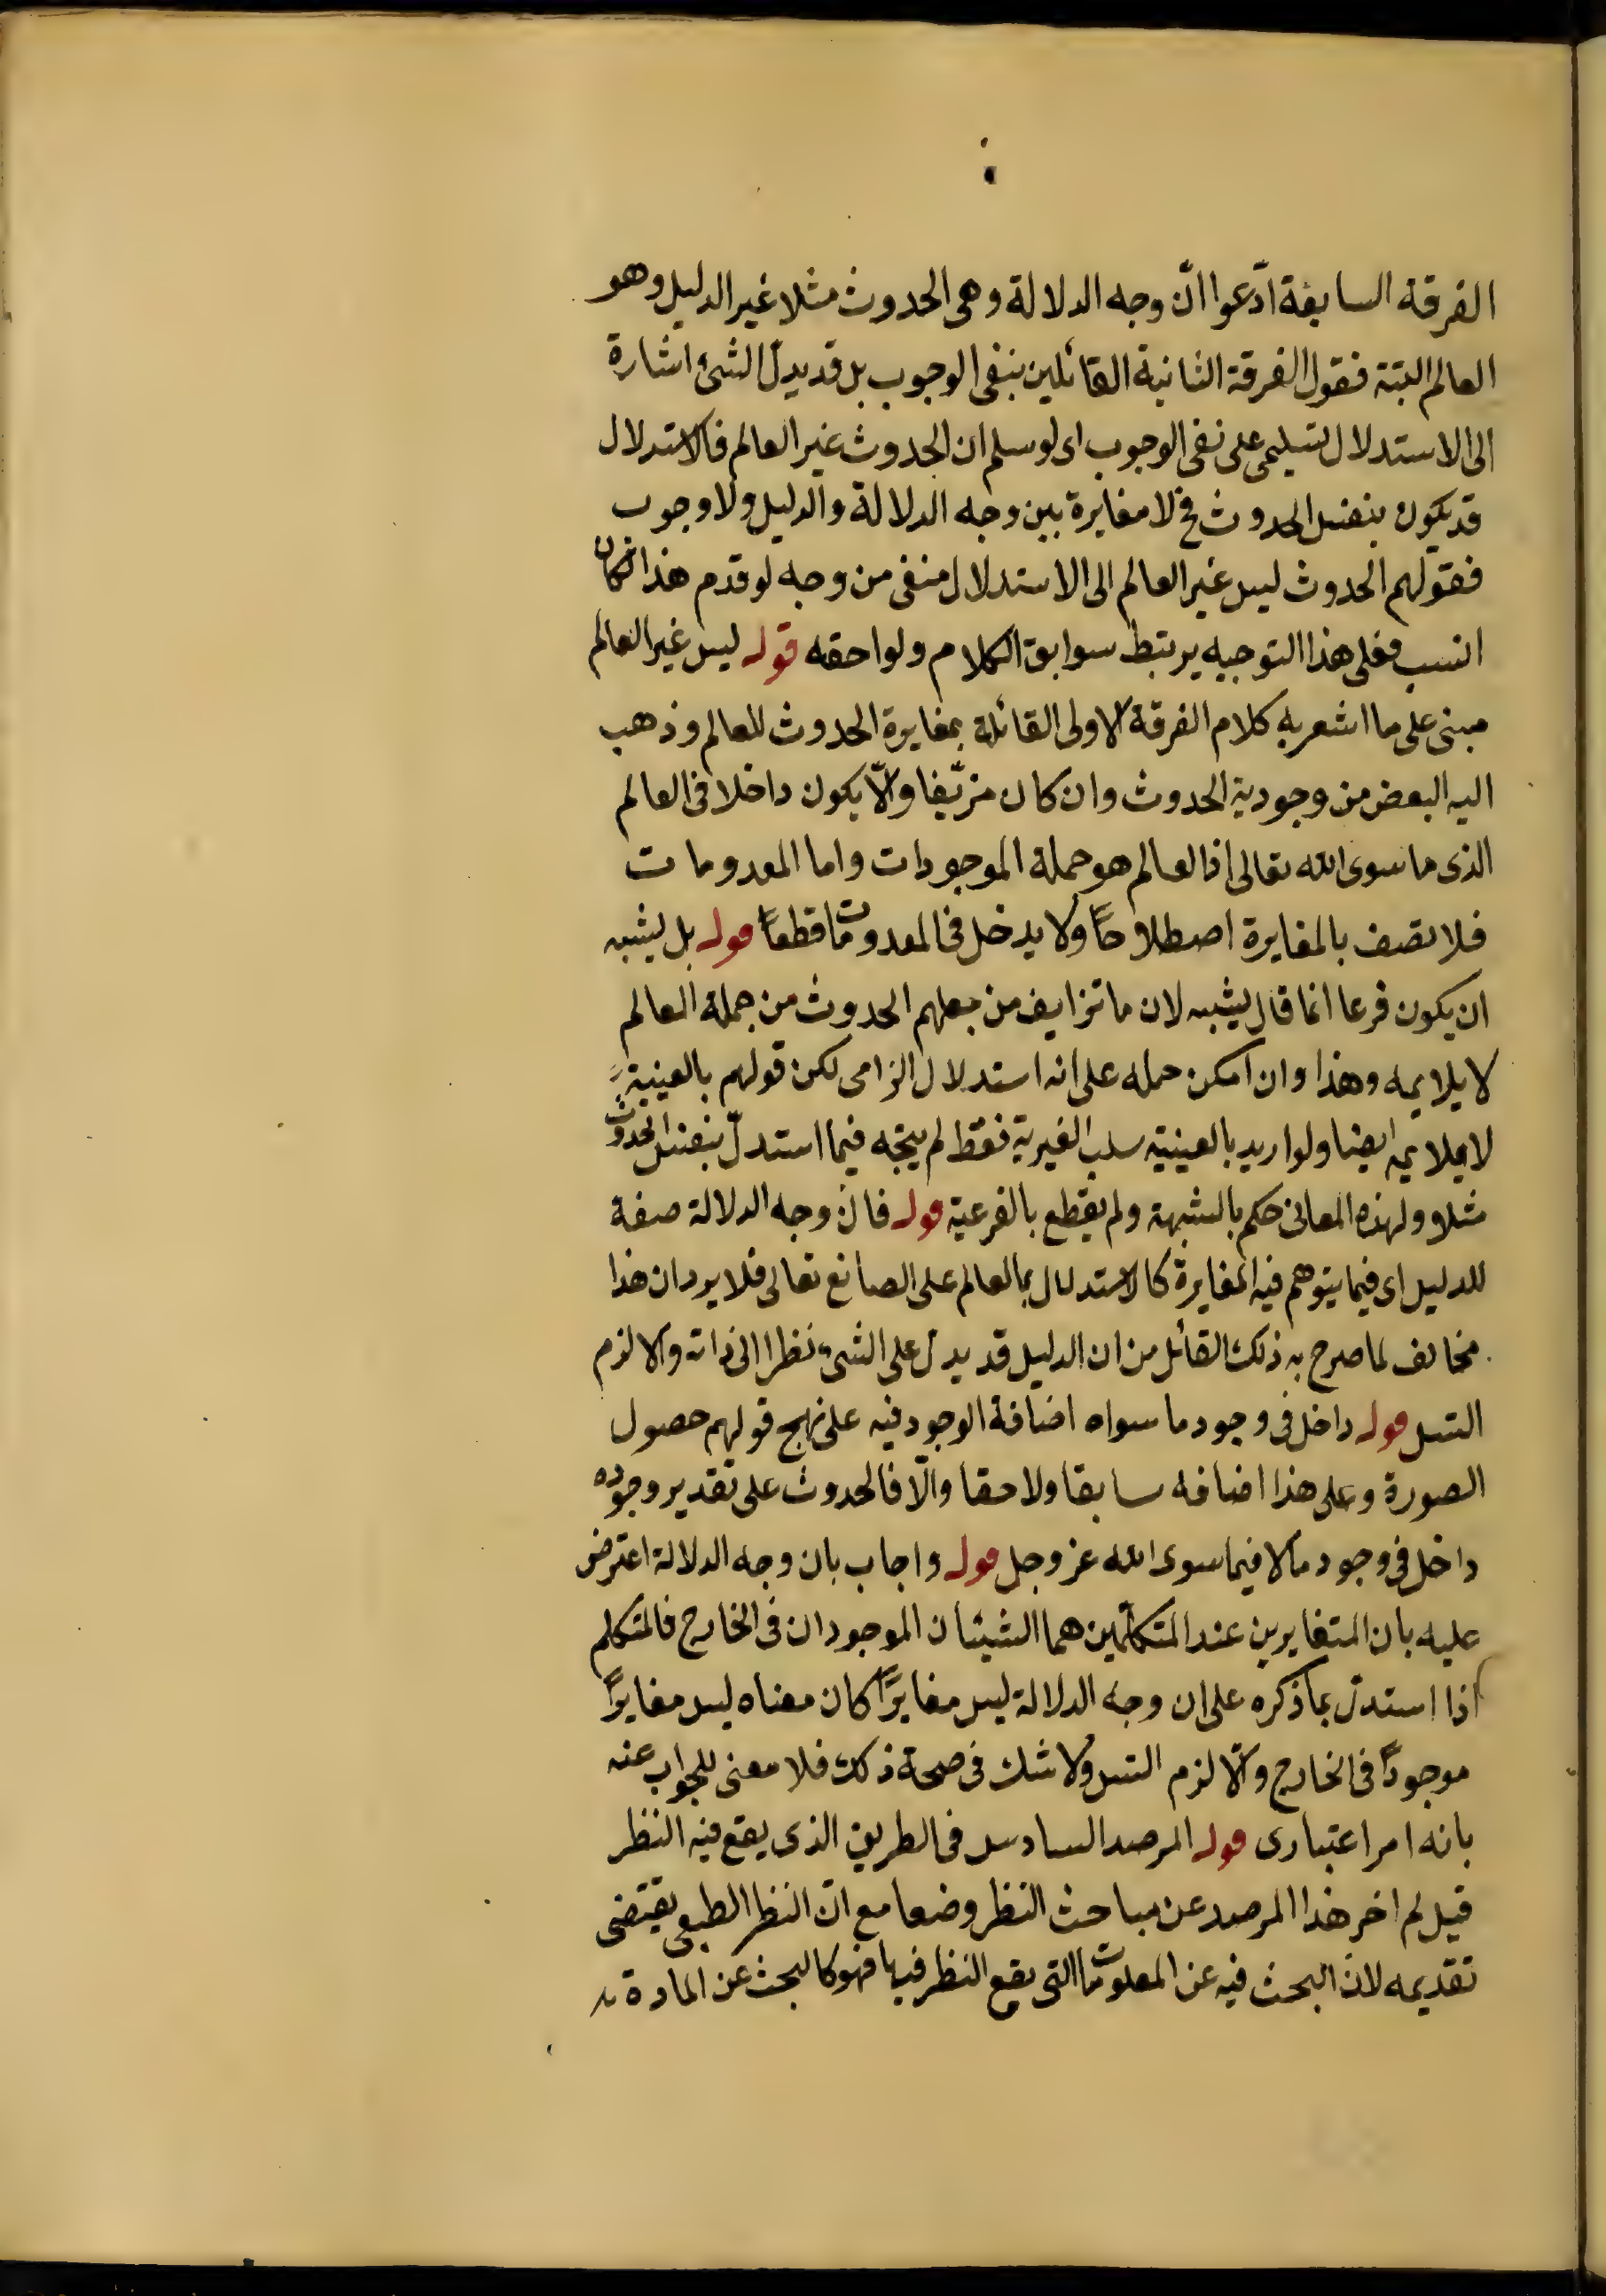 الفرقة السابقة ادّعوا انّ وجه الدلالة وهى الحدوث مثلا غير الدليل وهو
العالم البتة فقول الفرقة الثانية القائلين بنفى الوجوب بل قد يدلّ الشئ اشارة
الى الاستدلال تسليمى على نفى الوجوب اى لو سلم ان الحدوث غير العالم فالاستدلال
قد يكون بنفس الحدوث فح لا مغايرة بين وجه الدلالة والدليل ولا وجوب
فقولهم الحدوث ليس غير العالم الى الاستدلال منفى من وجه لو قدم هذا لكان
انسب فعلى هذا التوجيه يرتبط سوابق الكلام ولواحقه قوله ليس غير العالم
مبنى على ما اشعر به كلام الفرقة الاولى القائلة بمغايرة الحدوث للعالم وذهب
اليه البعض من وجودية الحدوث وان كان مزيّفا والّا يكون داخلا فى العالم
الذى ما سوى الله تعالى اذ العالم هو جملة الموجودات واما المعدومات
فلا تصف بالمغايرة اصطلاحاً ولا يدخل فى المعدومات قطعاً قوله بل يشبه
ان يكون فرعا انما قال يشبه لان ما تزايف من جعلهم الحدوث من جملة العالم
لا يلايمه وهذا وان امكن حمله على انه استدلال الزامى لكن قولهم بالعينية
لا يلايمه ايضا ولو اريد بالعينية سلب الغيرية فقط لم يتجه فيما استدلّ بنفس الحدوث
مثلا ولهذه المعانى حكم بالشبهة ولم يقطع بالفرعية قوله فان وجه الدلالة صفة
للدليل اى فيما يتوهم فيه المغايرة كالاستدلال بالعالم على الصانع تعالى فلا يرد ان هذا
مخالف لما صرح به ذلك القائل من ان الدليل قد يدل على الشئ نظرا الى ذاته والا لزم
التس قوله داخل فى وجود ما سواه اضافة الوجود فيه على نهج قولهم حصول
الصورة وعلى هذا اضافه سابقا ولاحقا والّا فالحدوث على تقدير وجوده
داخل فى وجود ما لا فيما سوى الله عز وجل قوله واجاب بان وجه الدلالة اعترض
عليه بان المتغايرين عند المتكلّمين هما الشيئان الموجودان فى الخارج فالمتكلم
اذا استدل بما ذكره على ان وجه الدلالة ليس مغايرًا كان معناه ليس مغايرًا
موجودًا فى الخارج والّا لزم التس ولا شك فى صحة ذلك فلا معنى للجواب عنه
بانه امر اعتبارى قوله المرصد السادس فى الطريق الذى يقع فيه النظر
قيل لم اخر هذا المرصد عن مباحث النظر وضعا مع انّ النظر الطبعى يقتضى
تقديمه لانّ البحث فيه عن المعلومات التى يقع النظر فيها فهو كالبحث عن المادة